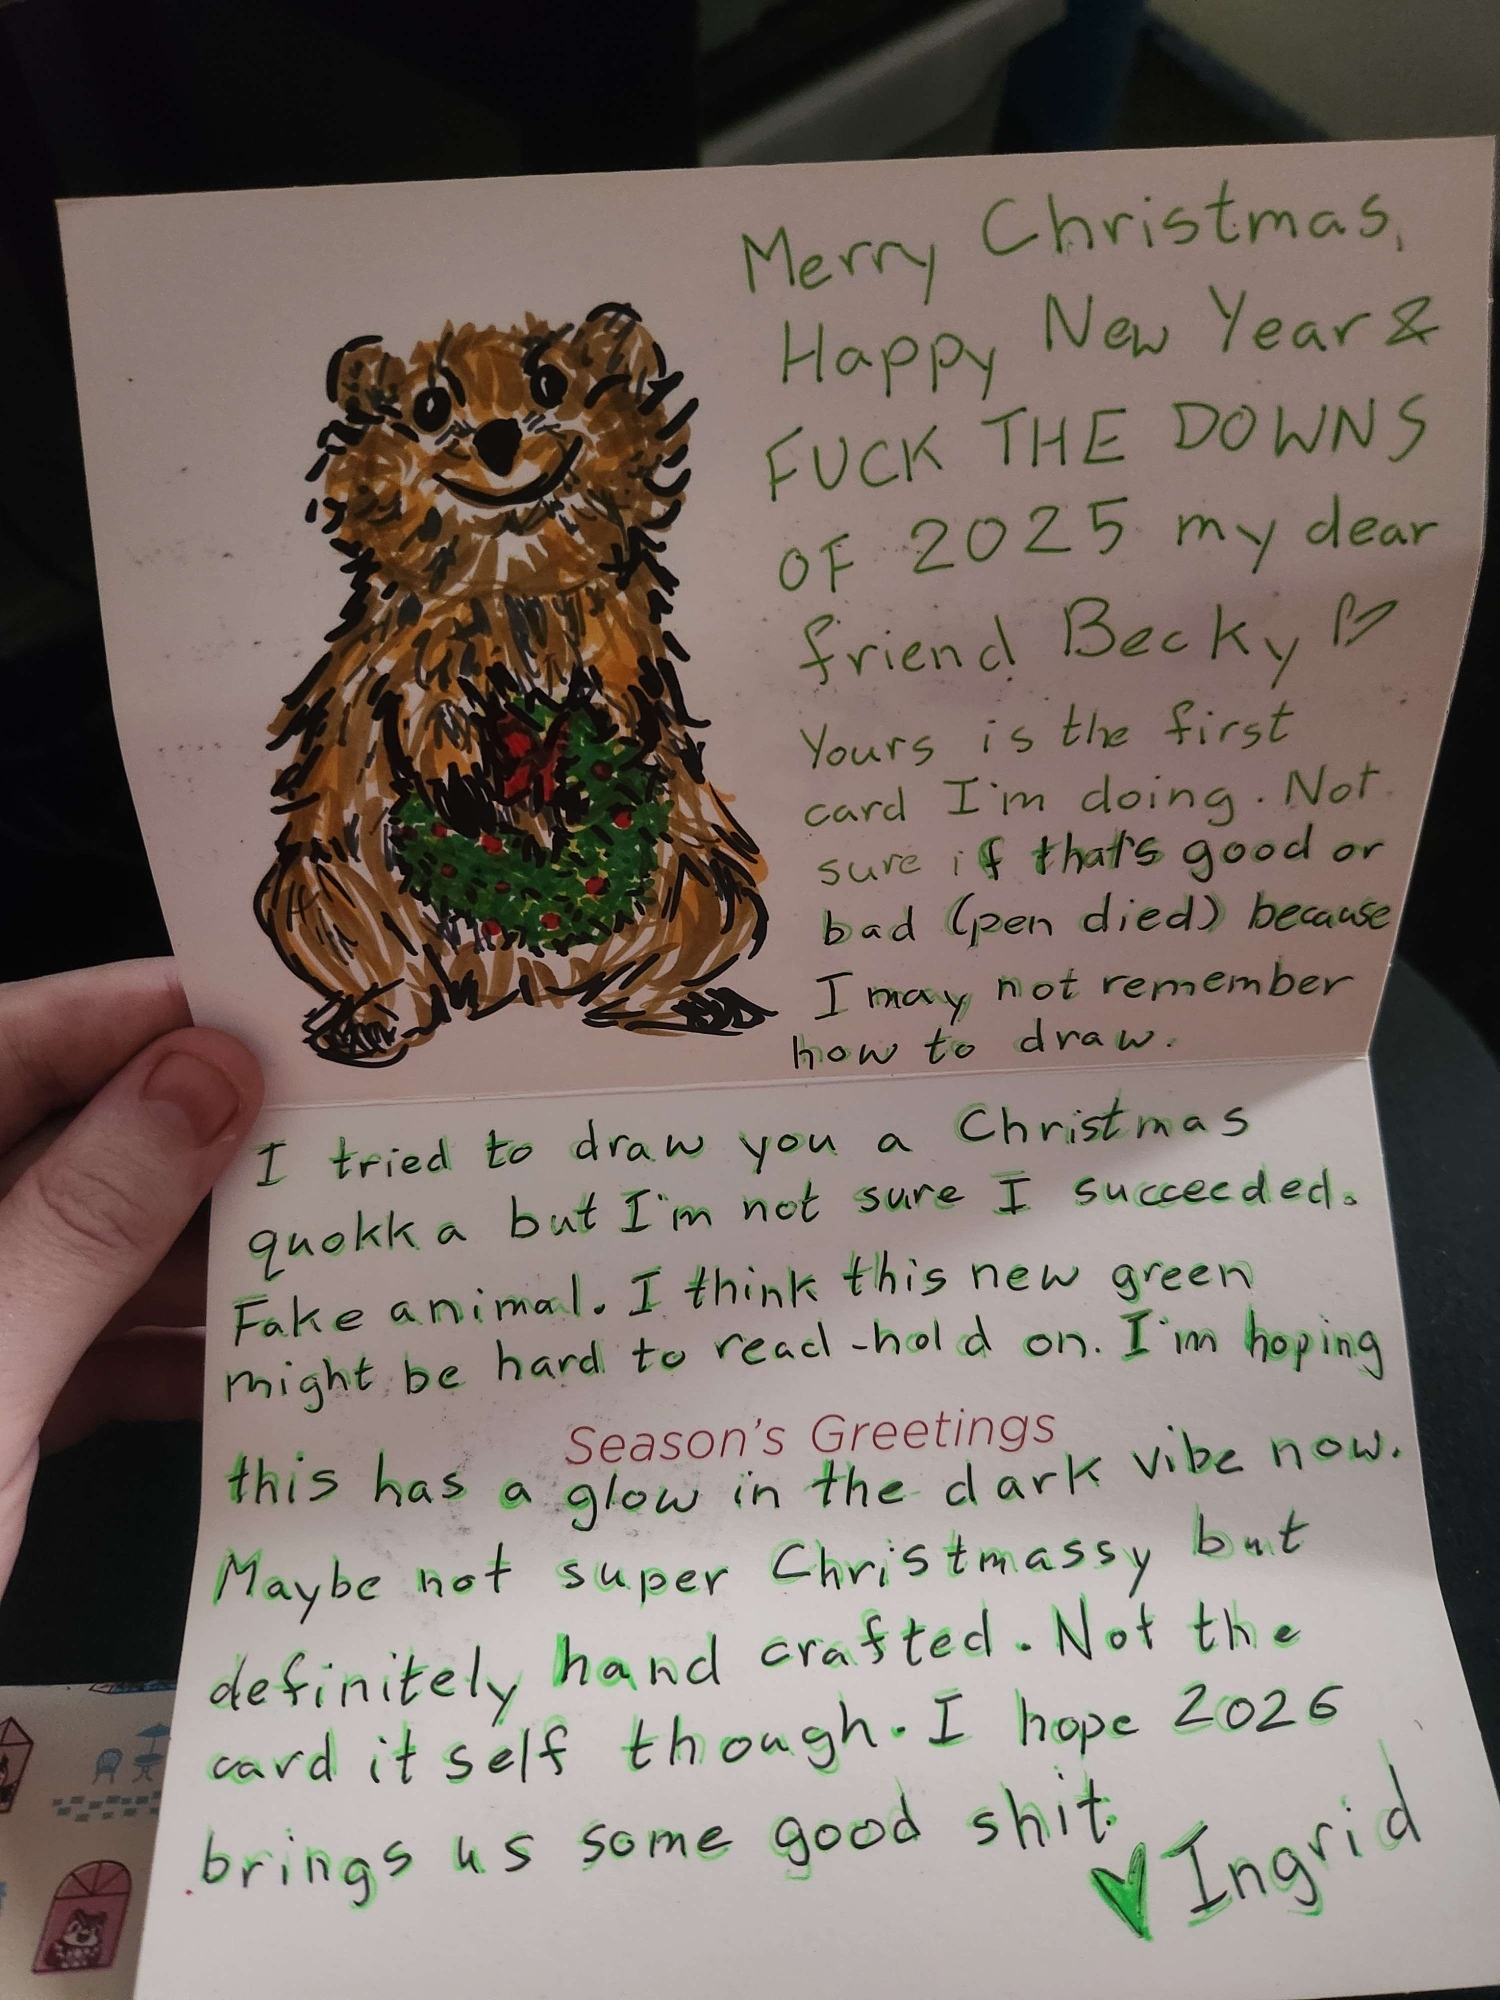 Merry Christmas,
Happy New Year &
FUCK THE DOWNS
OF 2025 my dear
friend Becky ♡
Yours is the first
card I'm doing. Not
sure if that's good or
bad (pen died) because
I may not remember
how to draw.
I tried to draw you a Christmas
quokka but I'm not sure I succeeded.
Fake animal. I think this new green
might be hard to read - hold on. I'm hoping
Season's Greetings
this has a glow in the dark vibe now.
Maybe not super Christmassy but
definitely hand crafted. Not the
card itself though. I hope 2026
brings us some good shit.
♥ Ingrid